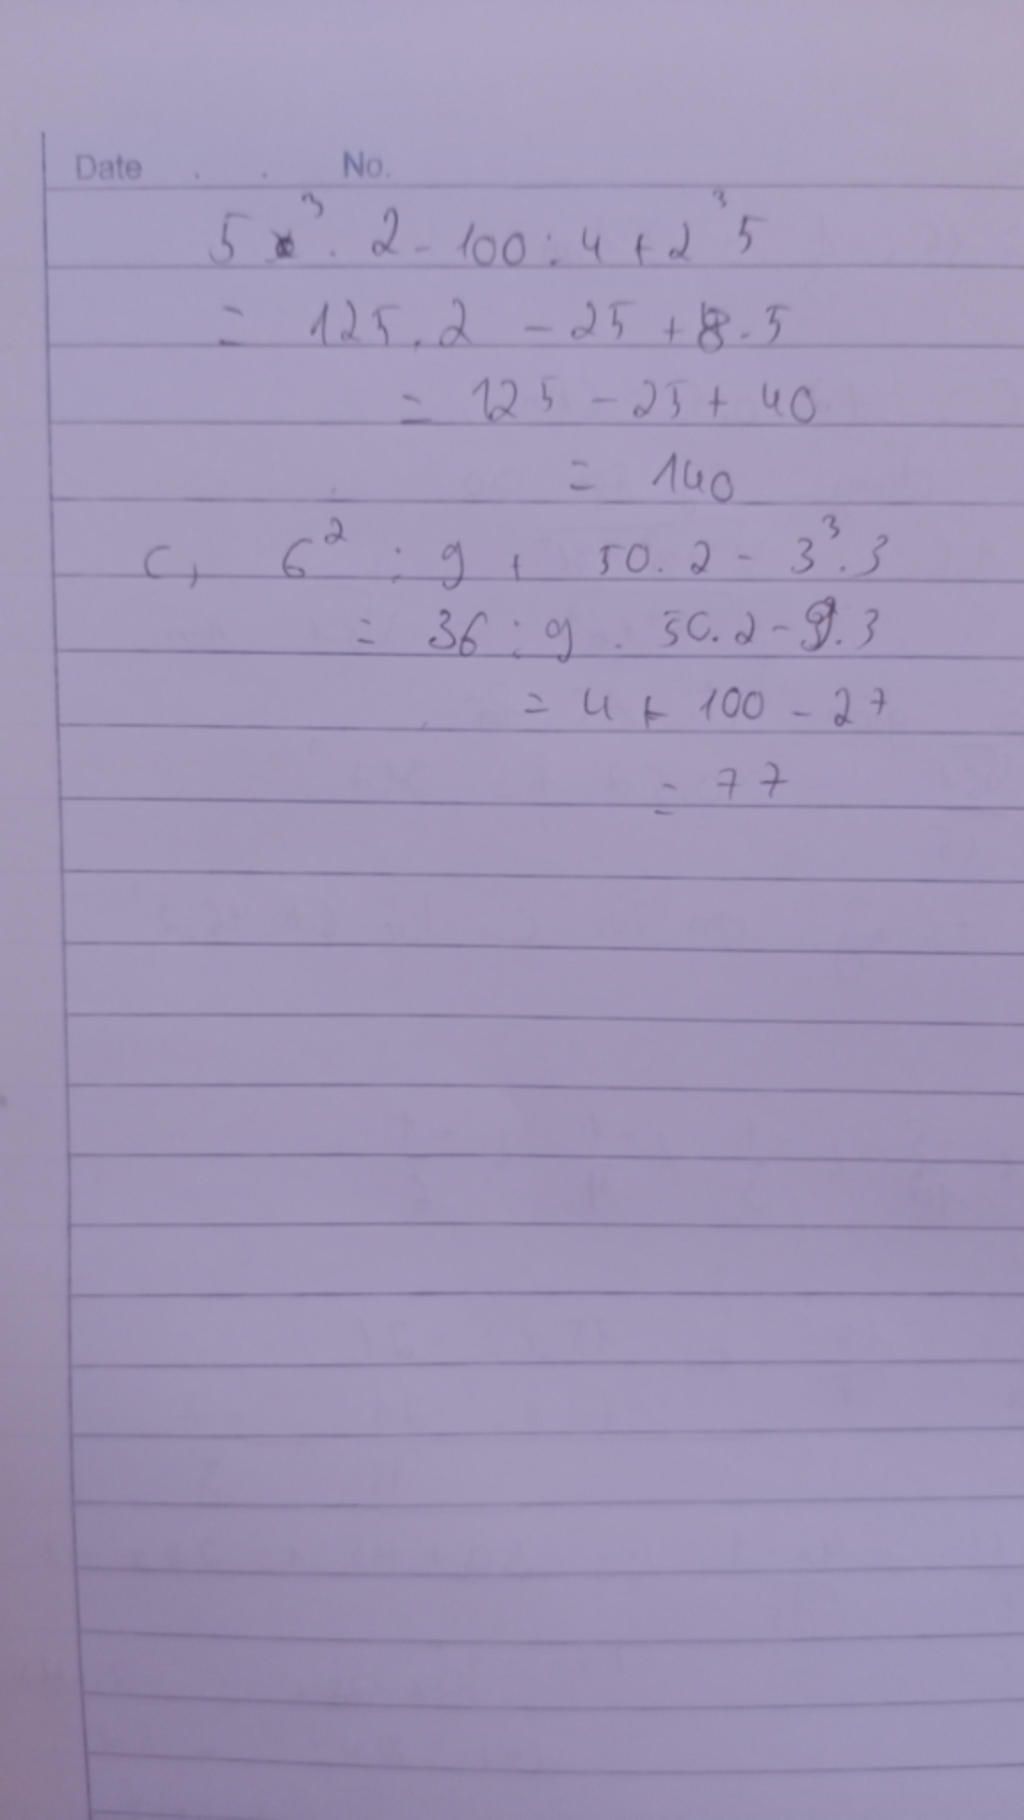 Date . . No.
5³ . 2 - 100 : 4 + 2³ 5
= 125 . 2 - 25 + 8 . 5
= 125 - 25 + 40
= 140
c, 6² : 9 + 50 . 2 - 3³ . 3
= 36 : 9 . 50 . 2 - 9 . 3
= 4 + 100 - 27
= 77